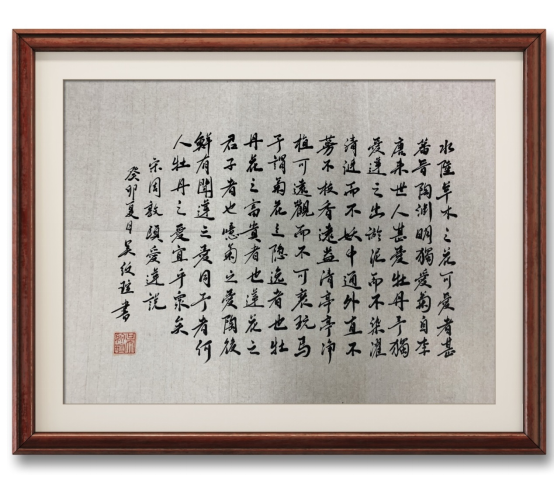 水陸草木之花可愛者甚
蕃晉陶淵明獨愛菊自李
唐来世人甚愛牡丹予獨
愛蓮之出淤泥而不染濯
清漣而不妖中通外直不
蔓不枝香遠益清亭亭净
植可遠觀而不可褻玩焉
予謂菊花之隐逸者也牡
丹花之富貴者也蓮花之
君子者也噫菊之愛陶後
鮮有聞蓮之愛同予者何
人牡丹之愛宜乎衆矣
宋周敦頤愛蓮說
癸卯夏日吴書